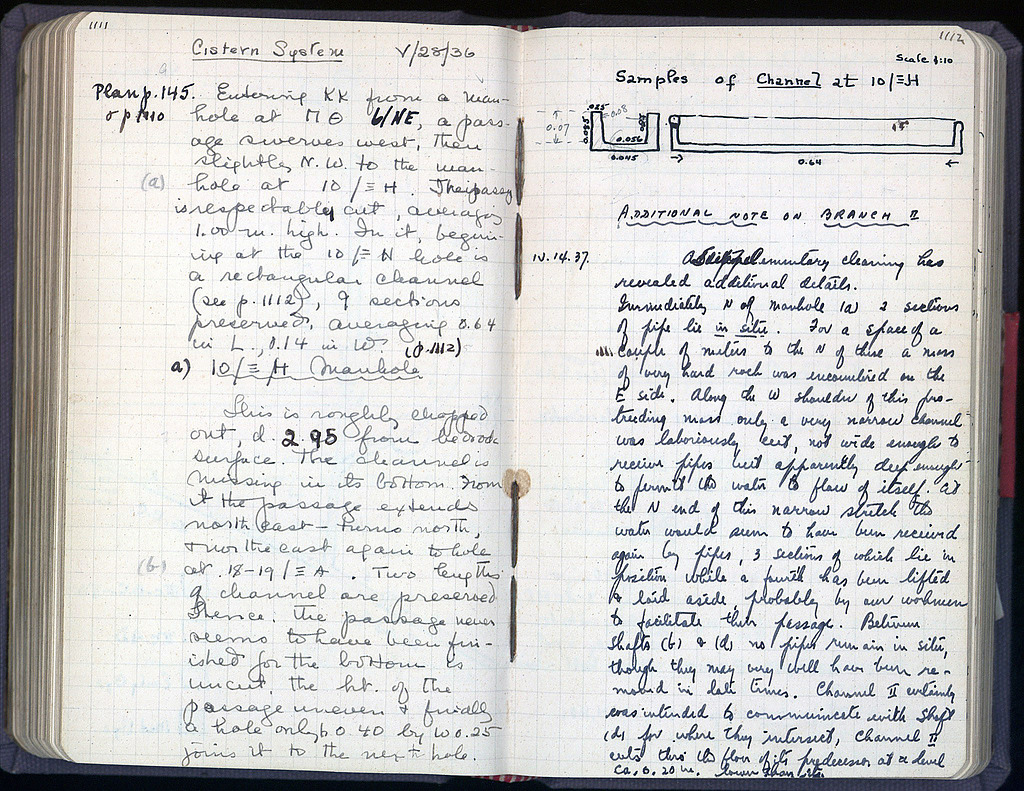 1111
Cistern System V/28/36
Plan p. 145.
Entering KK from a man-
hole at ΠΘ 6/NE, a pass-
age swerves west, then
slightly N.W. to the man-
(a) hole at 10/ΞH. The passage
is respectably cut, averages
1.00 m. high. In it, begin-
ing at the 10/ΞH hole is
a rectangular channel
(see p. 1112), 9 sections
preserved, averaging 0.64
in L., 0.14 in W. (p. 1112)
a) 10/ΞH Manhole
This is roughly chopped
out, d. 2.95 from bedrock
surface. The channel is
missing in its bottom. From
it the passage extends
north east – turns north,
& north east again to hole
(b) at 18-19/ΞA. Two lengths
of channel are preserved
thence. The passage never
seems to have been fin-
ished for the bottom is
uncut, the ht. of the
passage uneven & finally
a hole only 0.40 by 0.25
joins it to the next hole.
1112
Scale 1:10
Samples of Channel at 10/ΞH
.025
0.08
0.07
0.085
0.056
0.045
0.64
ADDITIONAL NOTE ON BRANCH II
IV.14.37. Supplementary cleaning has
revealed additional details.
Immediately N of manhole (a) 2 sections
of pipe lie in situ. For a space of a
couple of meters to the N of these a mass
of very hard rock was encountered on the
E side. Along the W shoulder of this pro-
truding mass only a very narrow channel
was laboriously cut, not wide enough to
receive pipes but apparently deep enough
to permit the water to flow of itself. At
the N end of this narrow stretch the
water would seem to have been received
again by pipes, 3 sections of which lie in
position while a fourth has been lifted
& laid aside, probably by our workmen
to facilitate their passage. Between
Shafts (b) & (d) no pipes remain in situ,
though they may very well have been re-
moved in late times. Channel II certainly
was intended to communicate with Shaft
(d) for where they intersect, Channel II
cuts thro the floor of its predecessor at a level
ca. 0.20 m. lower than